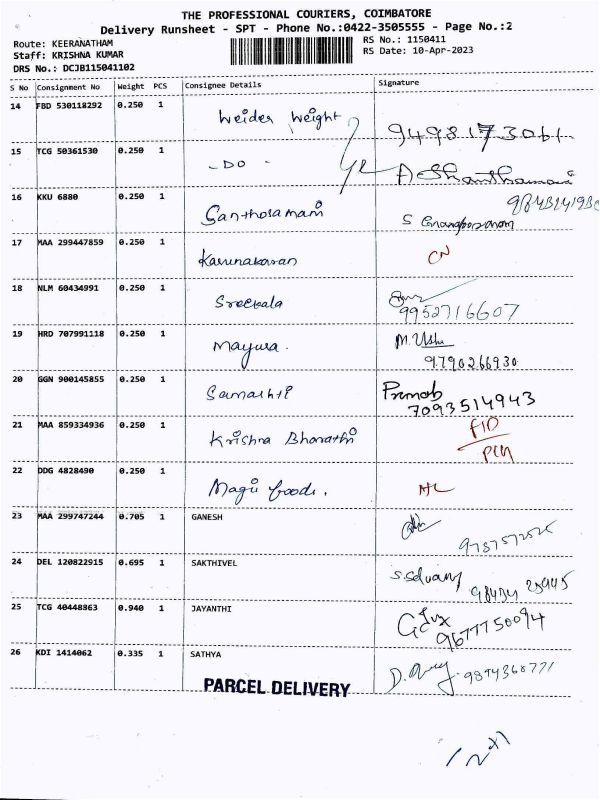 THE PROFESSIONAL COURIERS, COIMBATORE
Delivery Runsheet - SPT - Phone No.:0422-3505555 - Page No.:2
Route: KEERANATHAM RS No.: 1150411
Staff: KRISHNA KUMAR RS Date: 10-Apr-2023
DRS No.: DCJB115041102
S No Consignment No Weight PCS Consignee Details Signature
14 FBD 530118292 0.250 1 Weider Weight 9498173061
15 TCG 50361530 0.250 1 - DO -
16 KKU 6880 0.250 1 Santhosamani
17 MAA 299447859 0.250 1 Karunakaran CN
18 NLM 60434991 0.250 1 Sreekala 9952716607
19 HRD 707991118 0.250 1 Mayura. M. Usha 9790266930
20 GGN 900145855 0.250 1 7093514943
21 MAA 859334936 0.250 1 Krishna Bharathi
22 DDG 4828490 0.250 1 foods.
23 MAA 299747244 0.705 1 GANESH
24 DEL 120822915 0.695 1 SAKTHIVEL
25 TCG 40448863 0.940 1 JAYANTHI 9677750094
26 KDI 1414062 0.335 1 SATHYA
PARCEL DELIVERY